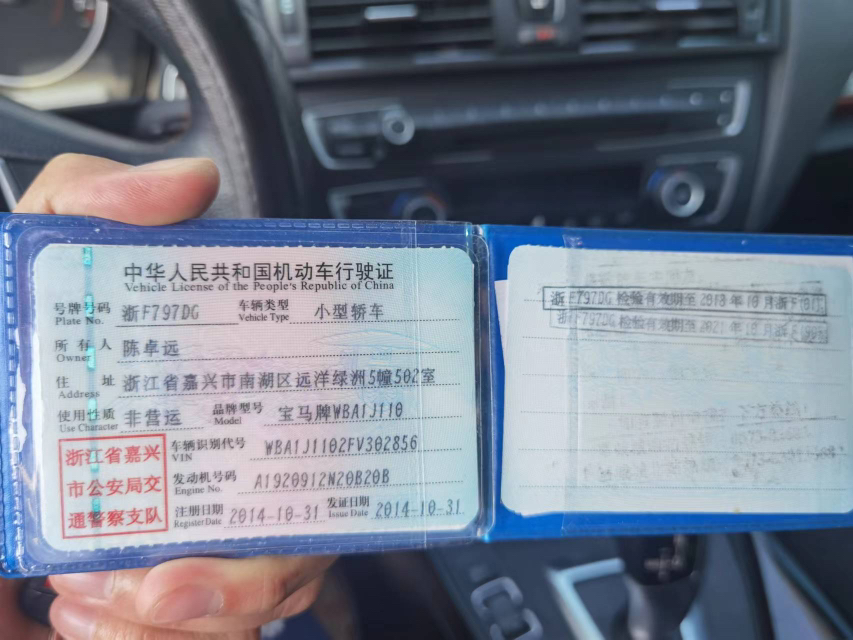 中华人民共和国机动车行驶证
Vehicle License of the People's Republic of China
号牌号码 Plate No. 浙F797DG 车辆类型 Vehicle Type 小型轿车
所有人 Owner 陈卓远
住址 Address 浙江省嘉兴市南湖区远洋绿洲5幢502室
使用性质 Use Character 非营运 品牌型号 Model 宝马牌WBA1J110
车辆识别代号 VIN WBA1J1102FV302856
发动机号码 Engine No. A1920912N20B20B
注册日期 Register Date 2014-10-31 发证日期 Issue Date 2014-10-31
浙江省嘉兴
市公安局交
通警察支队
浙F797DG 检验有效期至2018年10月浙F
F797DG 检验有效期至2021年10月浙F